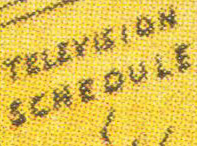 TELEVISION
SCHEDULE